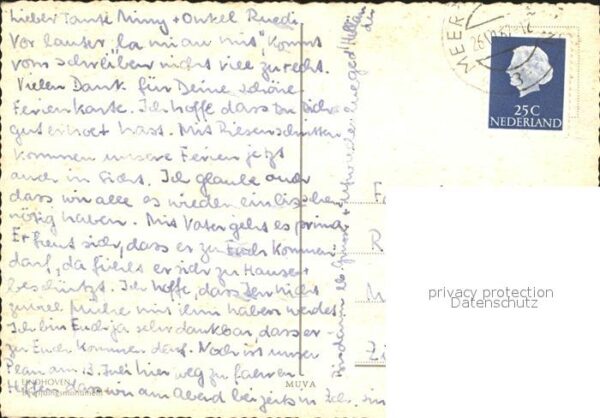 Liebe Tante Mimy + Onkel Ruedi.
Vor lauter, "la mi au mit", kommt
vom schreiben nicht viel zu recht.
Vielen Dank für Deine schöne
Ferienkarte. Ich hoffe dass Du Dich
gut erholt hast. Mit Riesenschritten
kommen unsere Ferien jetzt
auch in Sicht. Ich glaube auch
dass wir alle es wieder ein bisschen
nötig haben. Mit Vater geht es prima
Er freut sich, dass er zu Euch kommen
darf, da fühlt er sich zu Hause +
beschützt. Ich hoffe, dass Ihr nicht
zuviel Mühe mit ihm haben werdet.
Ich bin Euch ja sehr dankbar, dass er
zu Euch kommen darf. Noch ist unser
Plan am 13. Juli hier weg zu fahren
Hoffen dass wir am Abend bereits in
Grüsse + Aufwiederluege
MEER
26
25C
NEDERLAND
EINDHOVEN
MUVA
F
R
M
Z
privacy protection
Datenschutz